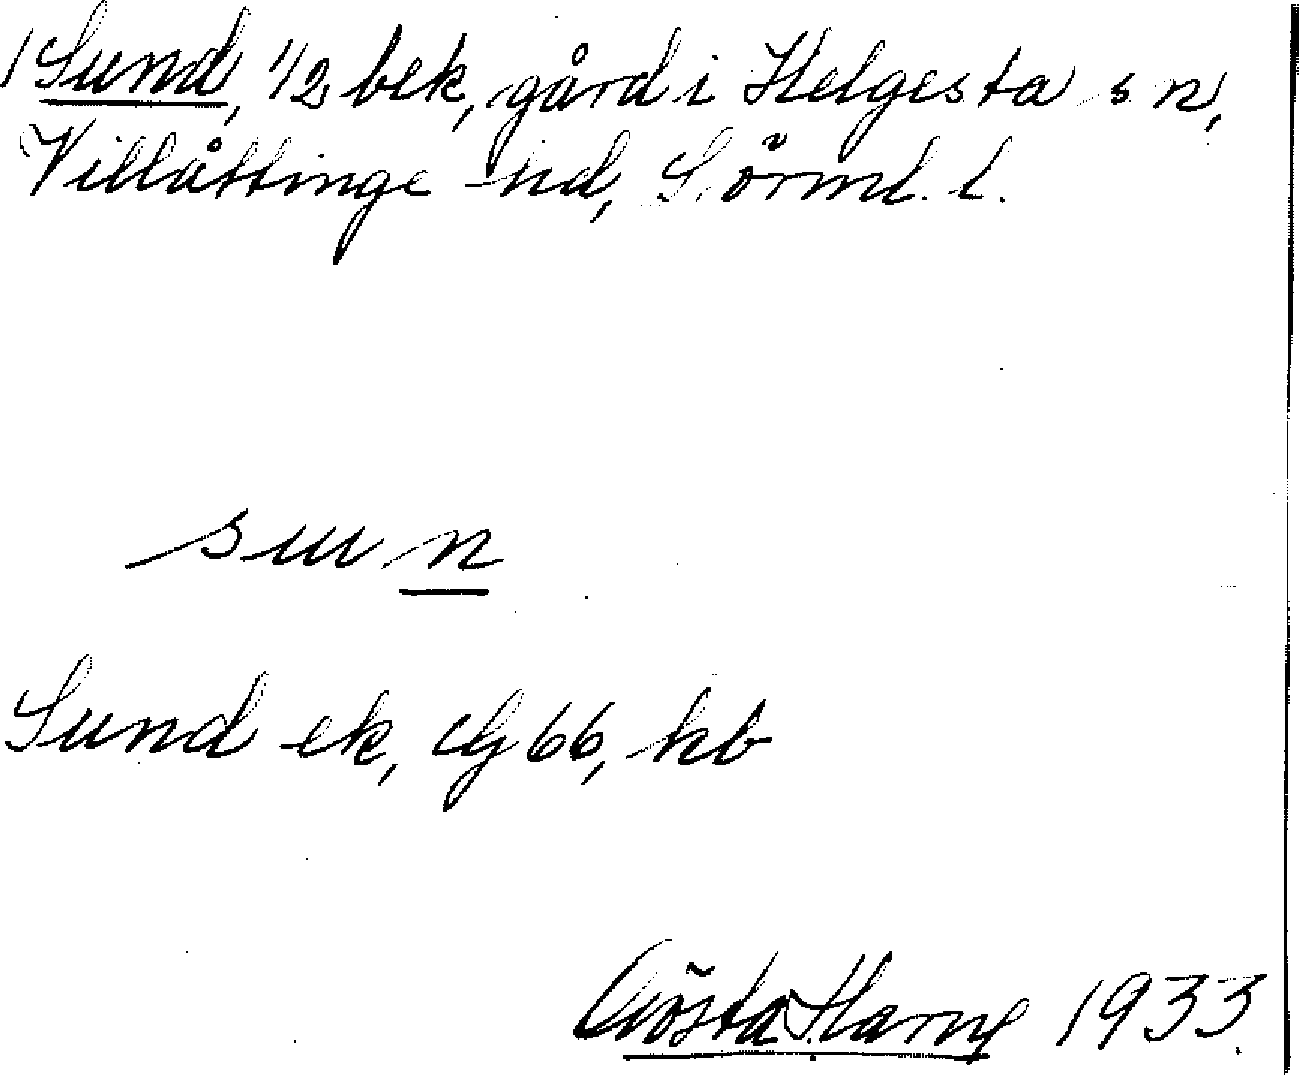 Sund, 1/2 bek, gård i Helgesta sn,
Villåttinge hd, Sörml. l.
sun
Sund ek, G 66, kb
Gösta Harng 1933.